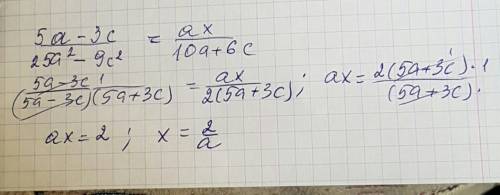 5a-3c / 25a²-9c² = ax / 10a+6c
5a-3c 1 / (5a-3c)(5a+3c) = ax / 2(5a+3c) ; ax = 2(5a+3c)·1 / (5a+3c)·
ax = 2 ; x = 2/a